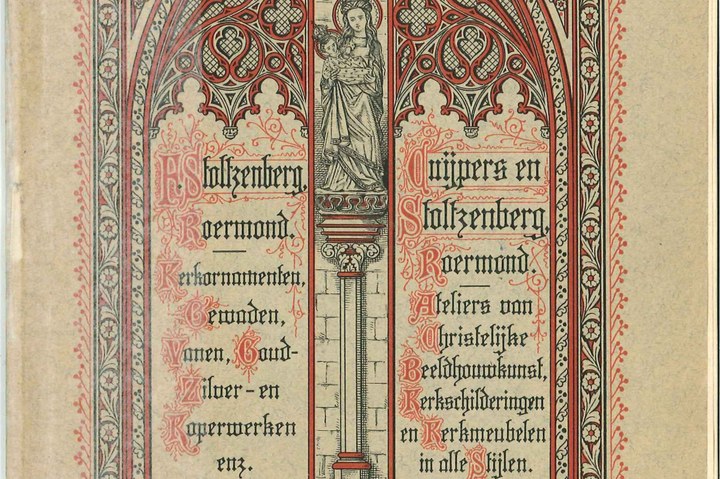 F. Stoltzenberg,
Roermond.
Kerkornamenten,
Gewaden,
Vanen, Goud-
Zilver- en
Koperwerken
enz.
Cuÿpers en
Stoltzenberg,
Roermond.
Ateliers van
Christelijke
Beeldhouwkunst,
Kerkschilderingen
en Kerkmeubelen
in alle Stijlen.